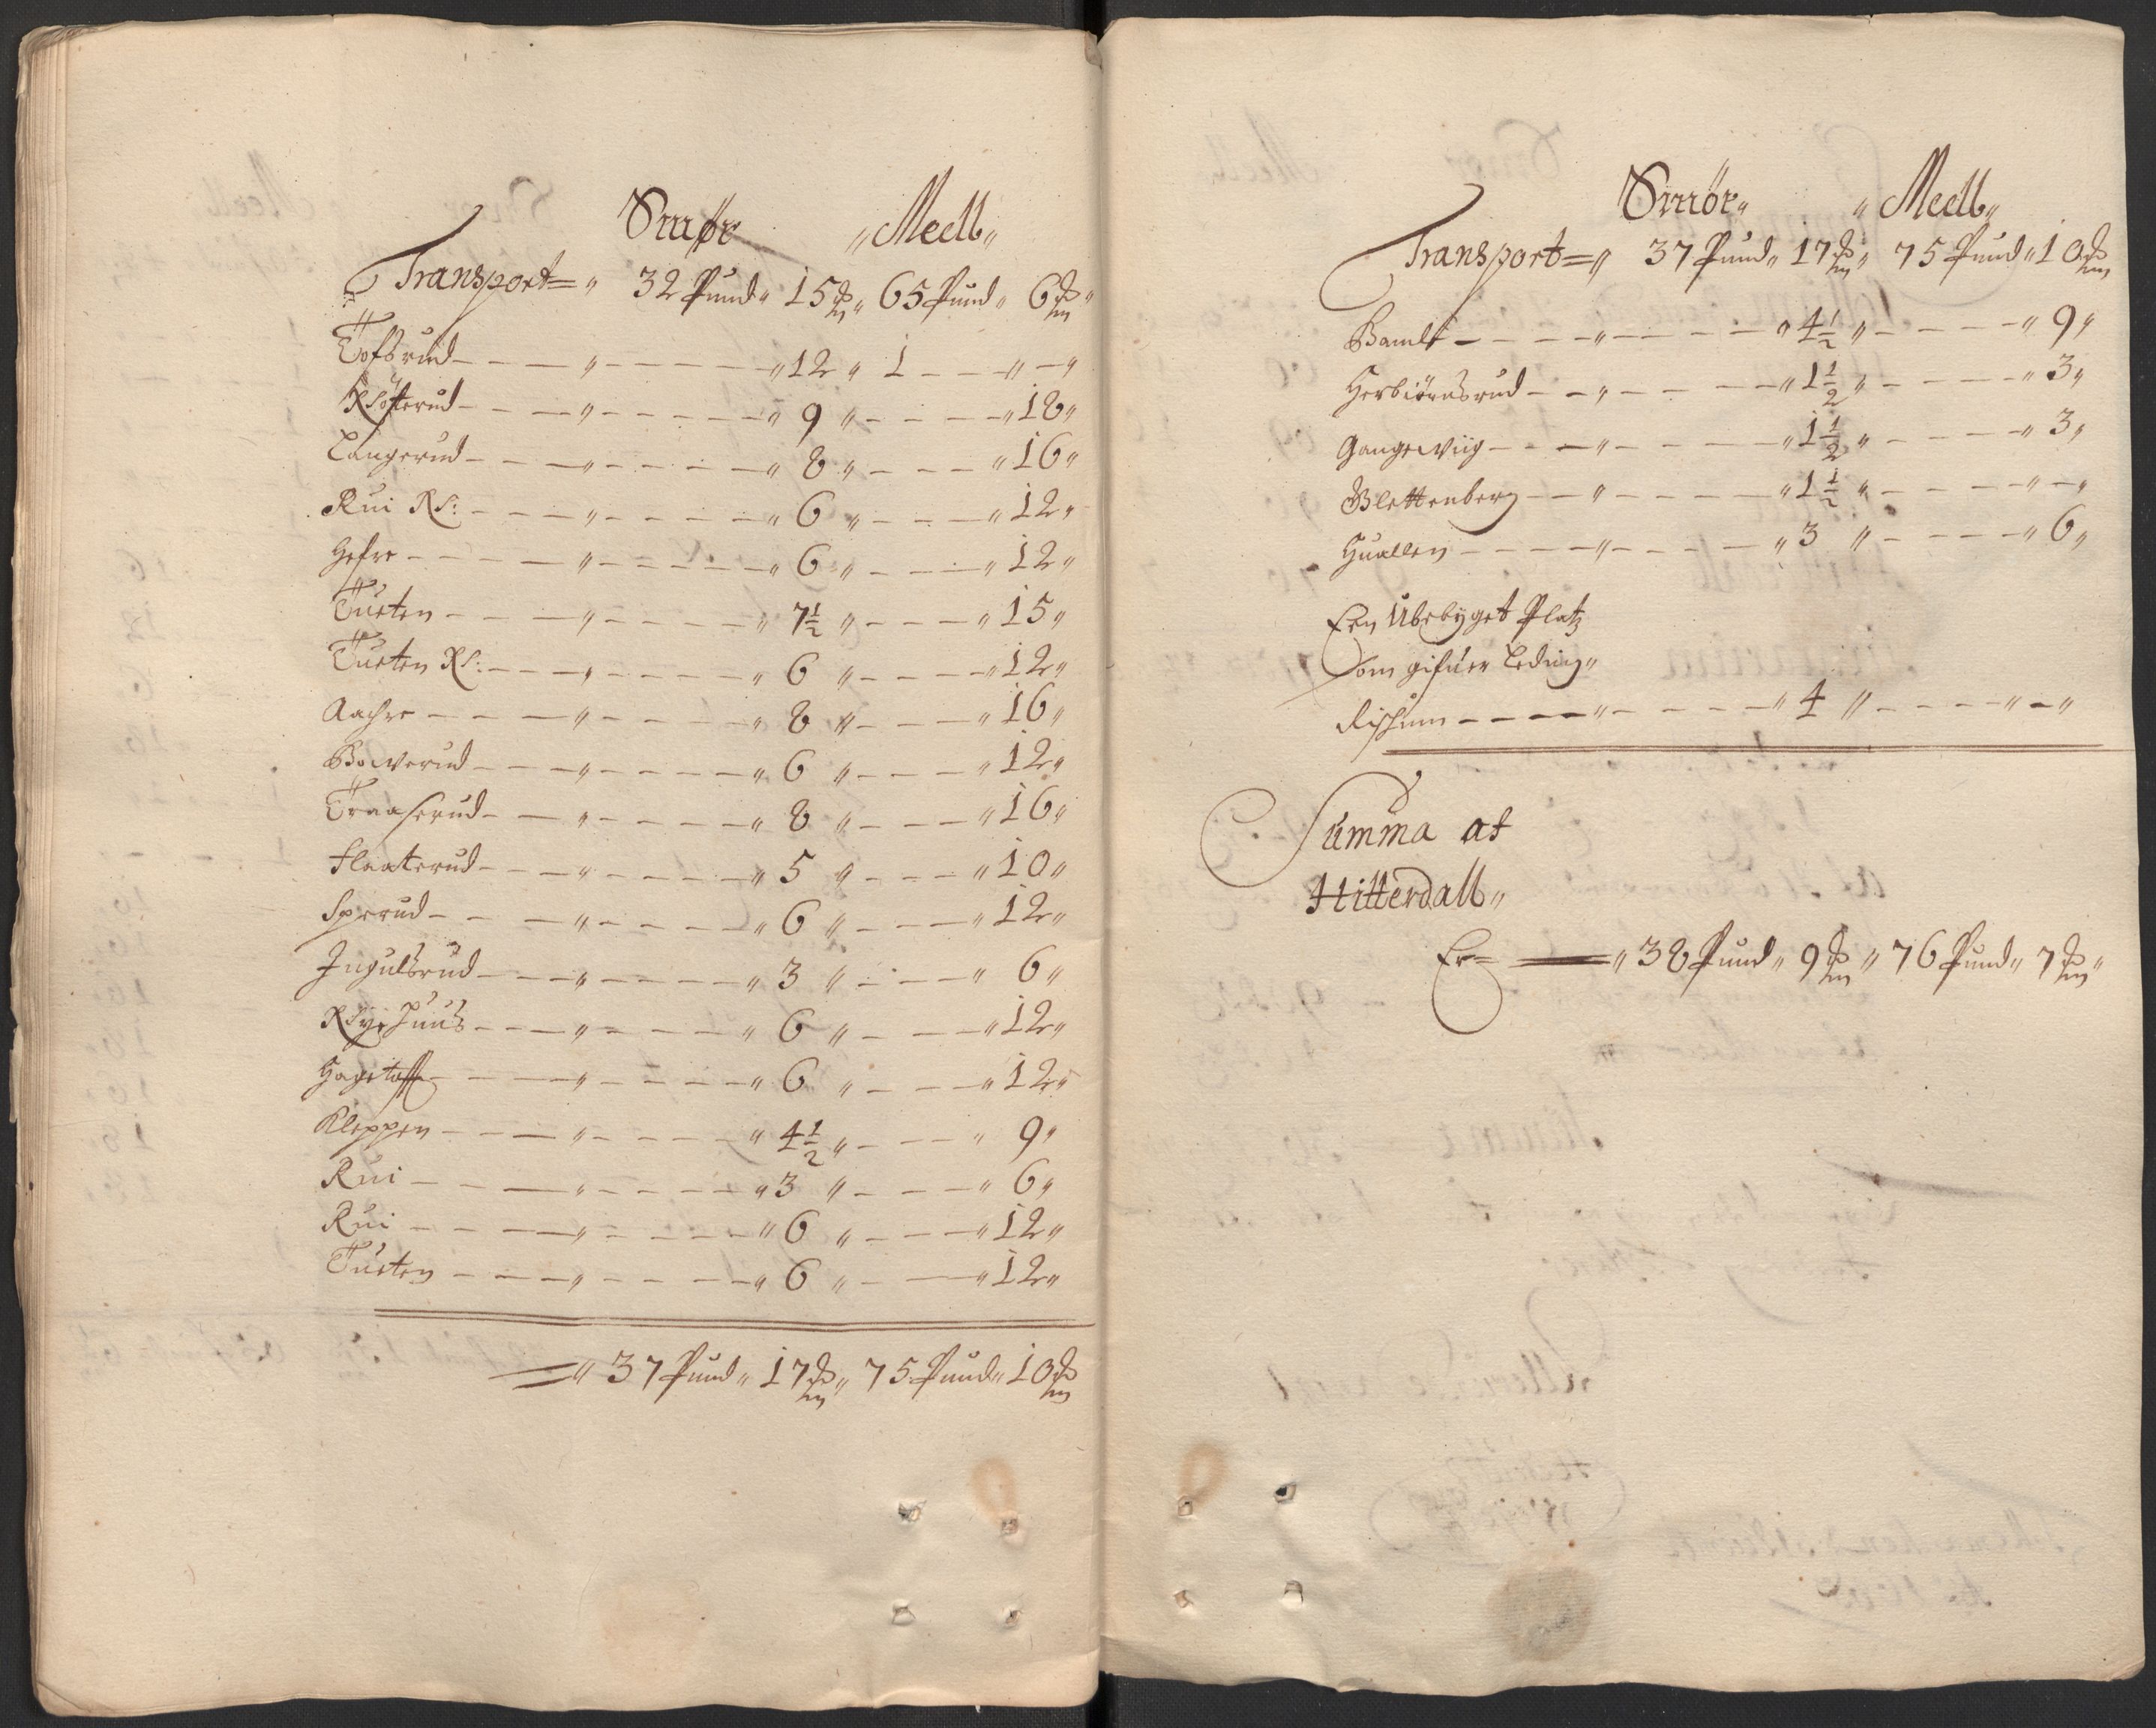 Smør „ Meell „
Transport = „ 32 Pund „ 15 ℔ „ 65 Pund „ 6 ℔ „
Tofsrud — — — „ — — — — „ 12 „ 1 — — „ — „
Kløfterud — — — „ — — — — „ 9 „ — — — „ 18 „
Langerud — — — „ — — — — „ 8 „ — — — „ 16 „
Rui Ks: — — — „ — — — — „ 6 „ — — — „ 12 „
Hefre — — — „ — — — — „ 6 „ — — — „ 12 „
Tueten — — — „ — — — — „ 7½ „ — — — „ 15 „
Tueten Ks: — — — „ — — — — „ 6 „ — — — „ 12 „
Aachre — — — „ — — — — „ 8 „ — — — „ 16 „
Bowerud — — — „ — — — — „ 6 „ — — — „ 12 „
Traaserud — — — „ — — — — „ 8 „ — — — „ 16 „
Flaaterud — — — „ — — — — „ 5 „ — — — „ 10 „
Sperud — — — „ — — — — „ 6 „ — — — „ 12 „
Ingulsrud — — — „ — — — — „ 3 „ — — — „ 6 „
— — — „ — — — — „ 6 „ — — — „ 12 „
— — — „ — — — — „ 6 „ — — — „ 12 „
Kleppen — — — „ — — — — „ 4½ „ — — — „ 9 „
Rui — — — „ — — — — „ 3 „ — — — „ 6 „
Rui — — — „ — — — — „ 6 „ — — — „ 12 „
Tueten — — — „ — — — — „ 6 „ — — — „ 12 „
= „ 37 Pund „ 17 ℔ „ 75 Pund „ 10 ℔
Smör „ „ Meell „
Transport = „ 37 Pund „ 17 ℔ „ 75 Pund „ 10 ℔
Bamle — — — „ — — — „ 4½ „ — — — „ 9 „
Herbiörnsrud — — „ — — — „ 1½ „ — — — „ 3 „
Gangewiig — — — „ — — — „ 1½ „ — — — „ 3 „
Blettenberg — — „ — — — „ 1½ „ — — — „ — „
Huallen — — — „ — — — „ 3 „ — — — „ 6 „
Een Ubebyget Platz
som gifuer Leding „
Rishum — — — „ — — — „ 4 „ — — — „ — „
Summa af
Hitterdall „
Er = — „ 38 Pund „ 9 ℔ „ 76 Pund „ 7 ℔ „